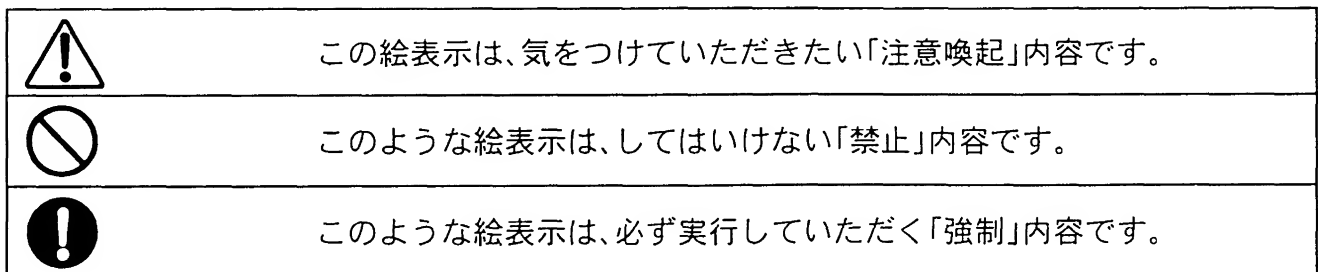 この絵表示は、気をつけていただきたい「注意喚起」内容です。
このような絵表示は、してはいけない「禁止」内容です。
このような絵表示は、必ず実行していただく「強制」内容です。